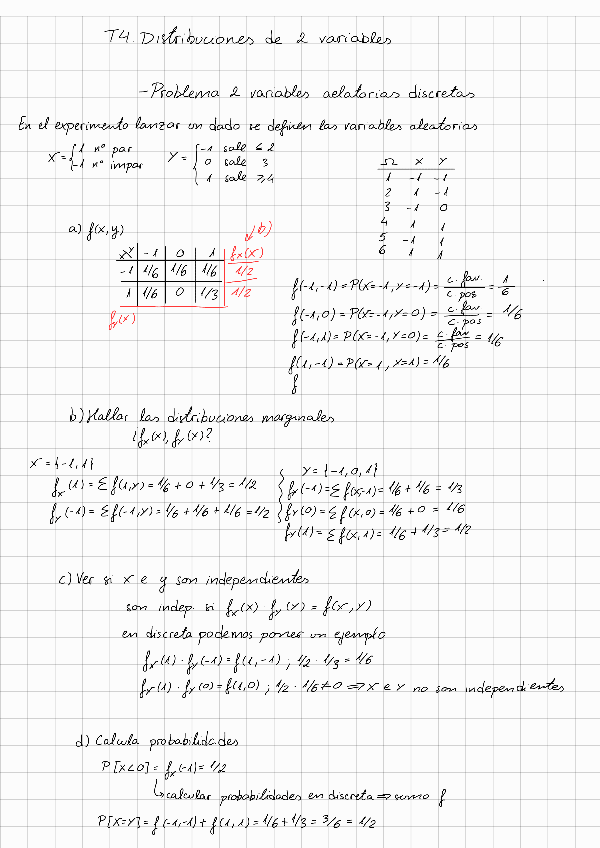 T4. Distribuciones de 2 variables
- Problema 2 variables aelatorias discretas
En el experimento lanzar un dado se definen las variables aleatorias
X = { 1 nº par
-1 nº impar
Y = { -1 sale ≤ 2
0 sale 3
1 sale ≥ 4
Ω X Y
1 -1 -1
2 1 -1
3 -1 0
4 1 1
5 -1 1
6 1 1
a) f(x,y)
b)
X Y -1 0 1 fx(x)
-1 1/6 1/6 1/6 1/2
1 1/6 0 1/3 1/2
fy(x)
f(-1,-1) = P(X=-1, Y=-1) = c. fav. / c. pos = 1/6
f(-1,0) = P(X=-1, Y=0) = c. fav / c. pos = 1/6
f(-1,1) = P(X=-1, Y=0) = c. fav / c. pos = 1/6
f(1,-1) = P(X=1, Y=1) = 1/6
f
b) Hallar las distribuciones marginales
¿fx(x), fy(x)?
X = {-1,1}
fx(1) = Σ f(1,y) = 1/6 + 0 + 1/3 = 1/2
fy(-1) = Σ f(-1,y) = 1/6 + 1/6 + 1/6 = 1/2
Y = {-1,0,1}
fy(-1) = Σ f(x,-1) = 1/6 + 1/6 = 1/3
fy(0) = Σ f(x,0) = 1/6 + 0 = 1/6
fy(1) = Σ f(x,1) = 1/6 + 1/3 = 1/2
c) Ver si x e y son independientes
son indep. si fx(x) fy(y) = f(x,y)
en discreta podemos poner un ejemplo
fx(1) · fy(-1) = f(1,-1) ; 1/2 · 1/3 = 1/6
fx(1) · fy(0) = f(1,0) ; 1/2 · 1/6 ≠ 0 ⇒ X e Y no son independientes
d) Calcula probabilidades
P[X<0] = fx(-1) = 1/2
↳ calcular probabilidades en discreta ⇒ sumo f
P[X=Y] = f(-1,-1) + f(1,1) = 1/6 + 1/3 = 3/6 = 1/2